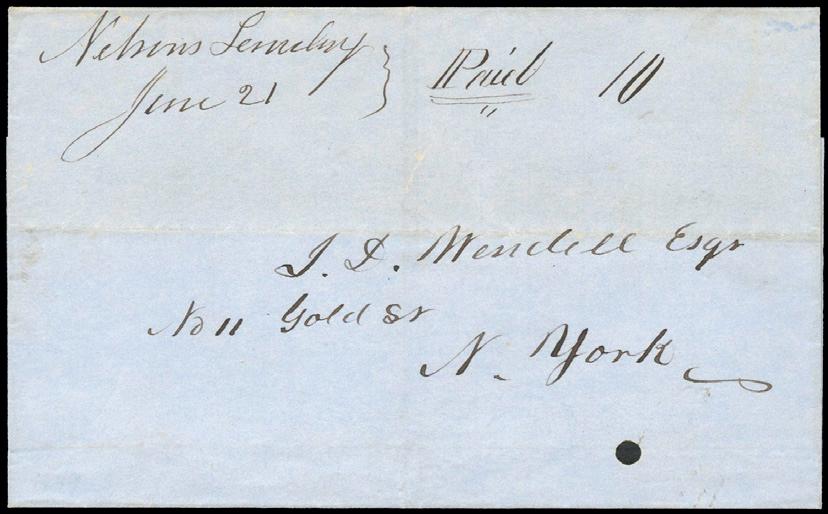 Nelsons
June 21
Paid 10
J. D. Wendell Esqr
No 11 Gold St
N. York